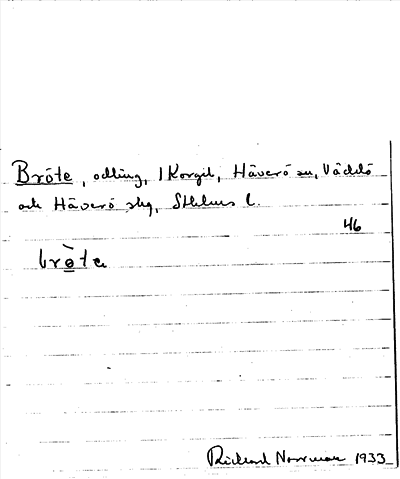 Bröte, odling, 1 Korgil, Häverö sn, Väddö
och Häverö skg, Sthlms l.
46
brö̀te
Rickard Norrman 1933